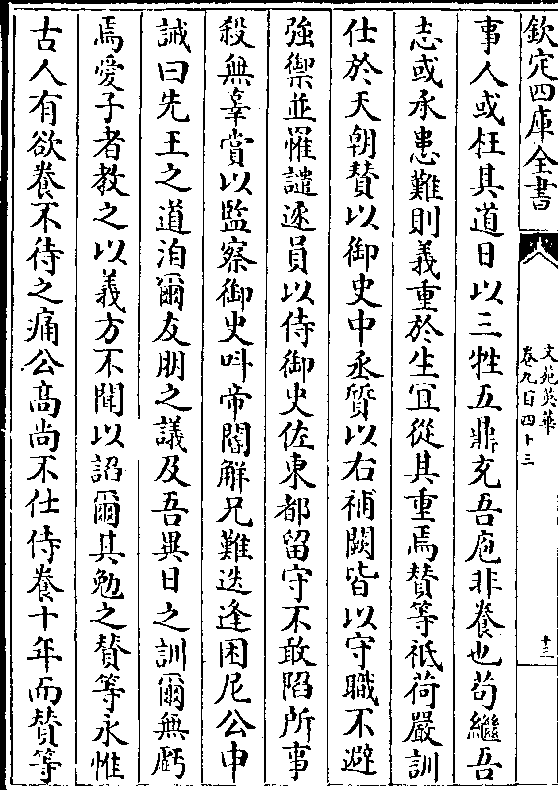 欽定四庫全書
文苑英華
卷九百四十三
十三
事人或枉其道日以三牲五鼎充吾庖非養也苟繼吾
志或承患難則義重於生宜從其重焉贊等祗荷嚴訓
仕於天朝贊以御史中丞質以右補闕皆以守職不避
強禦並罹譴逐員以侍御史佐東都留守不敢陷所事
殺無辜賞以監察御史呌帝閽解兄難迭逢困厄公申
誡曰先王之道洎爾友朋之議及吾異日之訓爾無虧
焉愛子者教之以義方不聞以謟爾其勉之贊等永惟
古人有欲養不待之痛公高尚不仕侍養十年而贊等